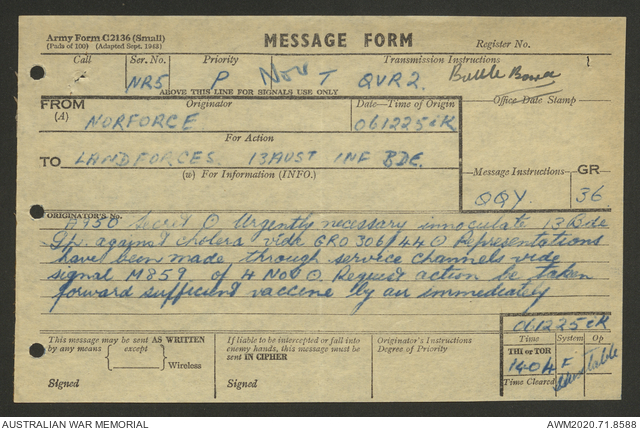 Army Form C2136 (Small)
(Pads of 100) (Adapted Sept. 1943)
MESSAGE FORM
Register No.
Call Ser. No. Priority Transmission Instructions
NR5 P Nov T QVR2.
ABOVE THIS LINE FOR SIGNALS USE ONLY
FROM Originator Date—Time of Origin Office Date Stamp
(A) NORFORCE 061225cK
For Action
TO LANDFORCES. 13 AUST INF BDE.
(w) For Information (INFO.) Message Instructions GR
QQY. 36
ORIGINATOR'S No.
A950 Secret O Urgently necessary innoculate 13 Bde
Gp. against cholera vide GRO 306/44 O Representations
have been made through service channels vide
signal M859 of 4 Nov O. Request action be taken
forward sufficient vaccine by air immediately
061225cK
This message may be sent AS WRITTEN
by any means { except } Wireless
Signed
If liable to be intercepted or fall into
enemy hands, this message must be
sent IN CIPHER
Signed
Originator's Instructions
Degree of Priority
Time System Op
THI or TOR
1404 F
Time Cleared
AUSTRALIAN WAR MEMORIAL AWM2020.71.8588